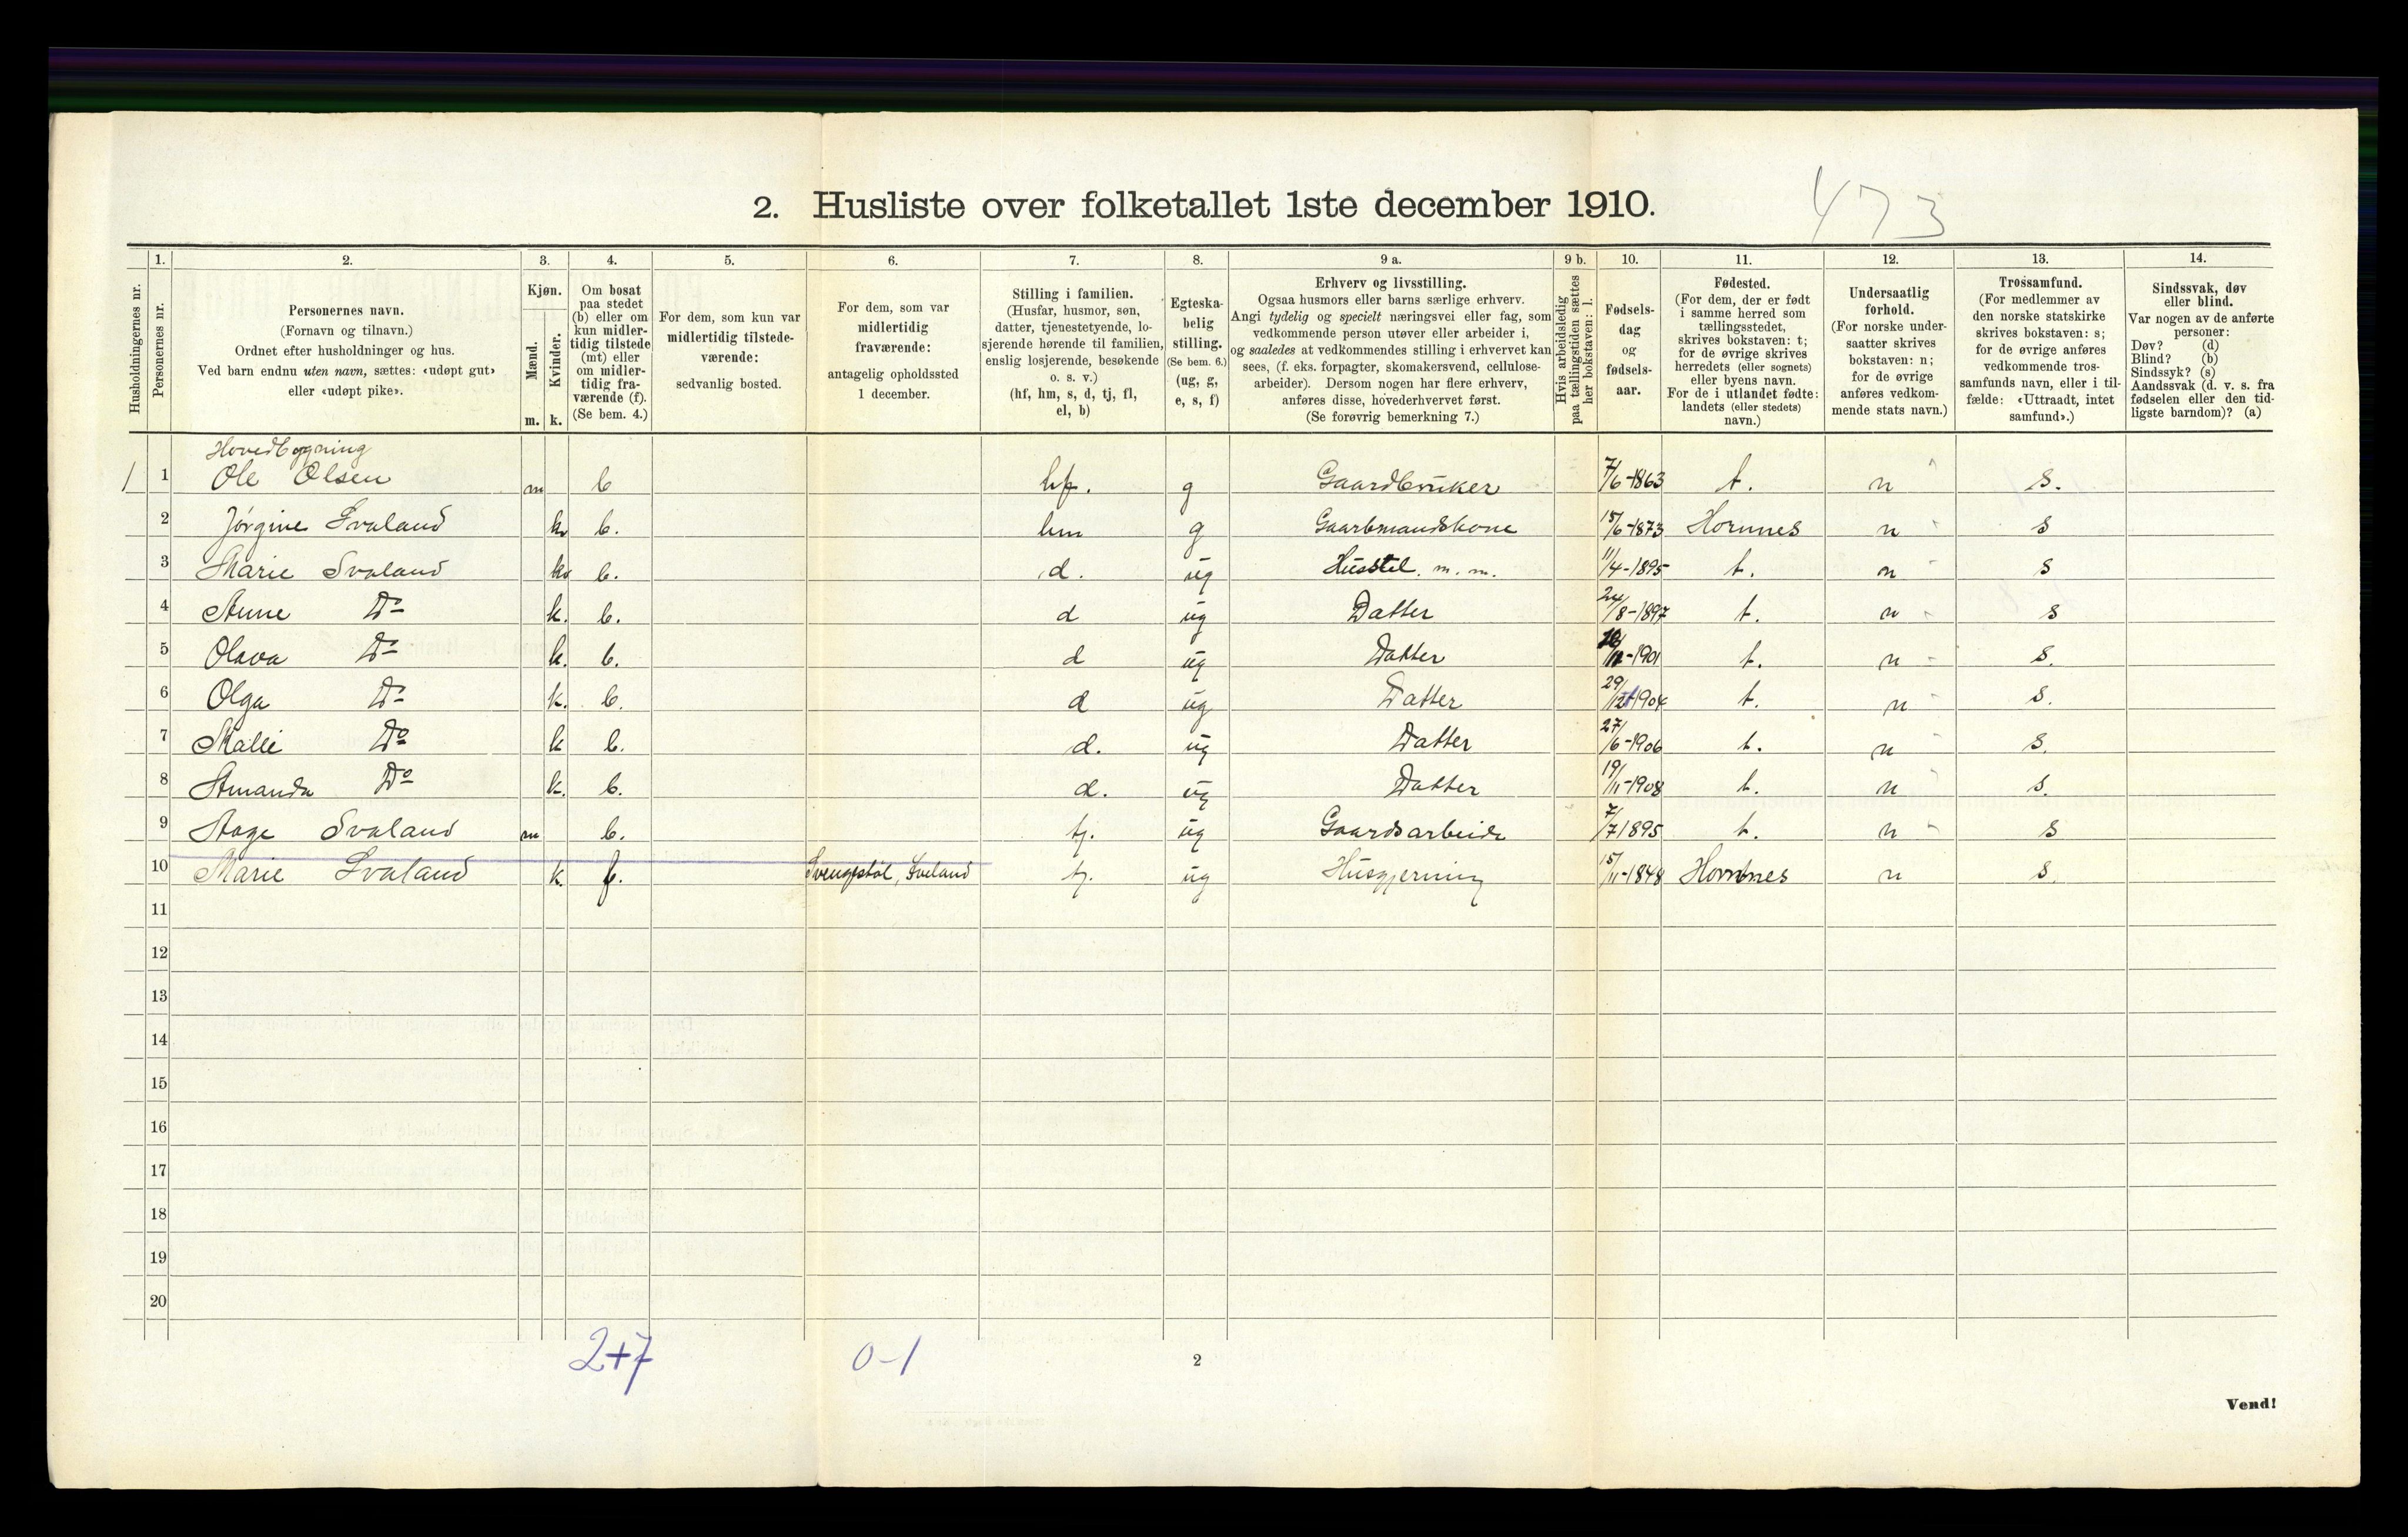 2. Husliste over folketallet 1ste december 1910.
473
Husholdningernes nr.
1.
Personernes nr.
2.
Personernes navn.
(Fornavn og tilnavn.)
Ordnet efter husholdninger og hus.
Ved barn endnu uten navn, sættes: «udøpt gut»
eller «udøpt pike».
3.
Kjøn.
Mænd.
Kvinder.
m. k.
4.
Om bosat
paa stedet
(b) eller om
kun midler-
tidig tilstede
(mt) eller
om midler-
tidig fra-
værende (f).
(Se bem. 4.)
5.
For dem, som kun var
midlertidig tilstede-
værende:
sedvanlig bosted.
6.
For dem, som var
midlertidig
fraværende:
antagelig opholdssted
1 december.
7.
Stilling i familien.
(Husfar, husmor, søn,
datter, tjenestetyende, lo-
sjerende hørende til familien,
enslig losjerende, besøkende
o. s. v.)
(hf, hm, s, d, tj, fl,
el, b)
8.
Egteska-
belig
stilling.
(Se bem. 6.)
(ug, g,
e, s, f)
9 a.
Erhverv og livsstilling.
Ogsaa husmors eller barns særlige erhverv.
Angi tydelig og specielt næringsvei eller fag, som
vedkommende person utøver eller arbeider i,
og saaledes at vedkommendes stilling i erhvervet kan
sees, (f. eks. forpagter, skomakersvend, cellulose-
arbeider). Dersom nogen har flere erhverv,
anføres disse, hovederhvervet først.
(Se forøvrig bemerkning 7.)
9 b.
Hvis arbeidsledig
paa tællingstiden sættes
her bokstaven: l.
10.
Fødsels-
dag
og
fødsels-
aar.
11.
Fødested.
(For dem, der er født
i samme herred som
tællingsstedet,
skrives bokstaven: t;
for de øvrige skrives
herredets (eller sognets)
eller byens navn.
For de i utlandet fødte:
landets (eller stedets)
navn.)
12.
Undersaatlig
forhold.
(For norske under-
saatter skrives
bokstaven: n;
for de øvrige
anføres vedkom-
mende stats navn.)
13.
Trossamfund.
(For medlemmer av
den norske statskirke
skrives bokstaven: s;
for de øvrige anføres
vedkommende tros-
samfunds navn, eller i til-
fælde: «Uttraadt, intet
samfund».)
14.
Sindssvak, døv
eller blind.
Var nogen av de anførte
personer:
Døv? (d)
Blind? (b)
Sindssyk? (s)
Aandssvak (d. v. s. fra
fødselen eller den tid-
ligste barndom)? (a)
Hovedbygning
1 1 Ole Olsen m b hf. g Gaardbruker 7/6-1863 t. n s.
2 Jørgine Svaland kv b. hm g Gaarbmandskone 15/6-1873 Hornnes n s
3 Marie Svaland kv b. d. ug Husstel m. m. 11/4-1895 t. n s
4 Anne Do k. b. d ug Datter 24/8-1897 t. n s
5 Olava Do k. b. d ug Datter -1901 t. n s.
6 Olga Do k. b. d ug Datter 29/12-1904 t. n s.
7 Malli Do k b. d. ug Datter 27/6-1906 t. n s.
8 Amanda Do k. b. d. ug Datter 19/11-1908 t. n s.
9 Aage Svaland m b. tj. ug Gaardsarbeide 7/7 1895 t. n s
10 Marie Svaland k. f. Svengstøl, Sveland tj. ug Husgjerning 15/11-1848 Hornnes n s.
11
12
13
14
15
16
17
18
19
20
2+7 0-1
2
Vend!